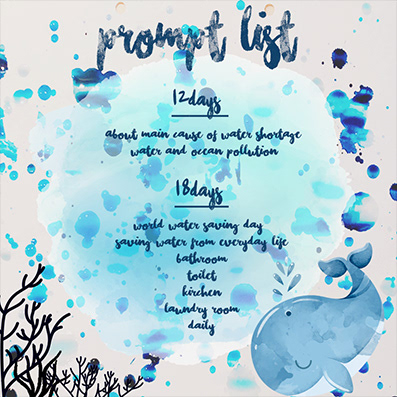 prompt list
12days
about main cause of water shortage
water and ocean pollution
18days
world water saving day
saving water from everyday life
bathroom
toilet
kirchen
laundry room
daily